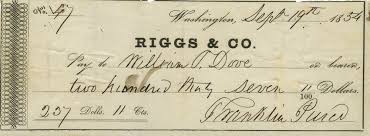 No. 47
Washington, Sept 19th 1854
RIGGS & CO.
Pay to William T. Dove or bearer,
two hundred thirty seven 11/100 Dollars.
237 Dolls. 11 Cts. Franklin Pierce